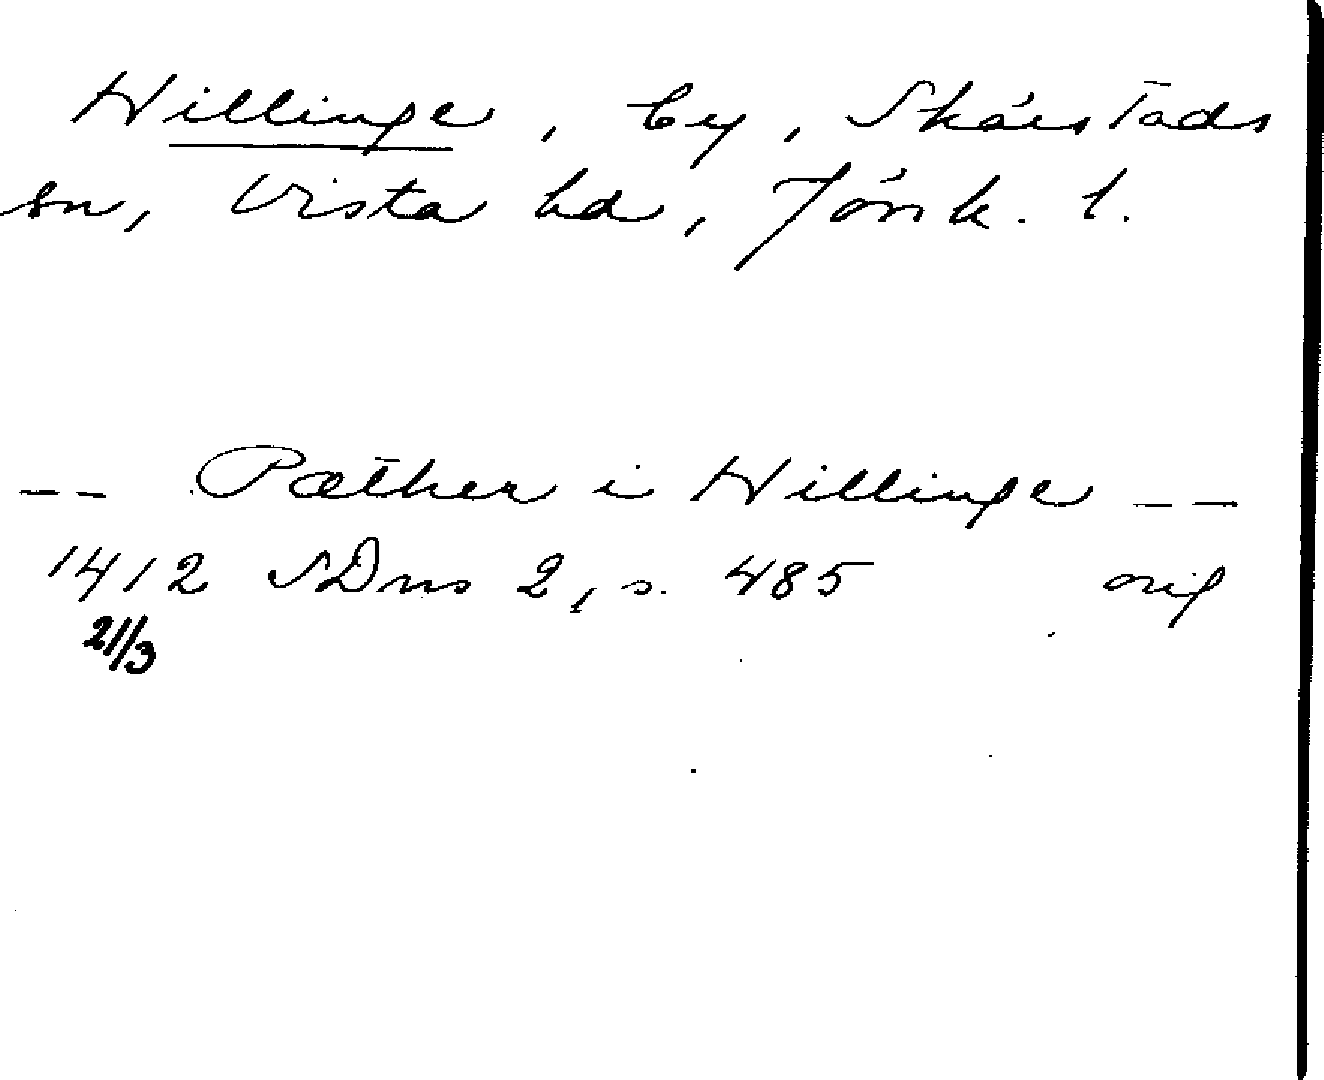 Hillinge, by, Skärstads
sn, Vista hd, Jönk. l.
-- Pæther i Hillinge --
1412 SDns 2, s. 485 orig
21/3